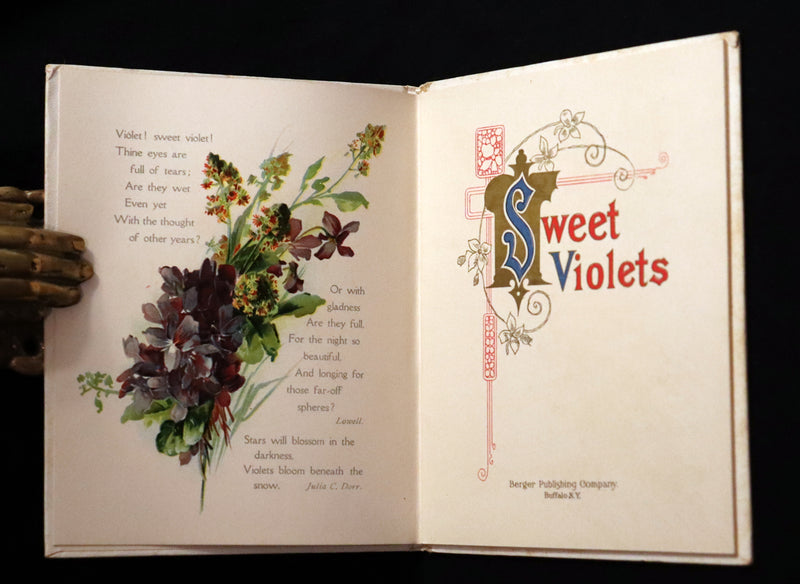 Violet! sweet violet!
Thine eyes are
full of tears;
Are they wet
Even yet
With the thought
of other years?
Or with
gladness
Are they full,
For the night so
beautiful,
And longing for
those far-off
spheres?
Lowell.
Stars will blossom in the
darkness,
Violets bloom beneath the
snow. Julia C. Dorr.
Sweet
Violets
Berger Publishing Company.
Buffalo N.Y.